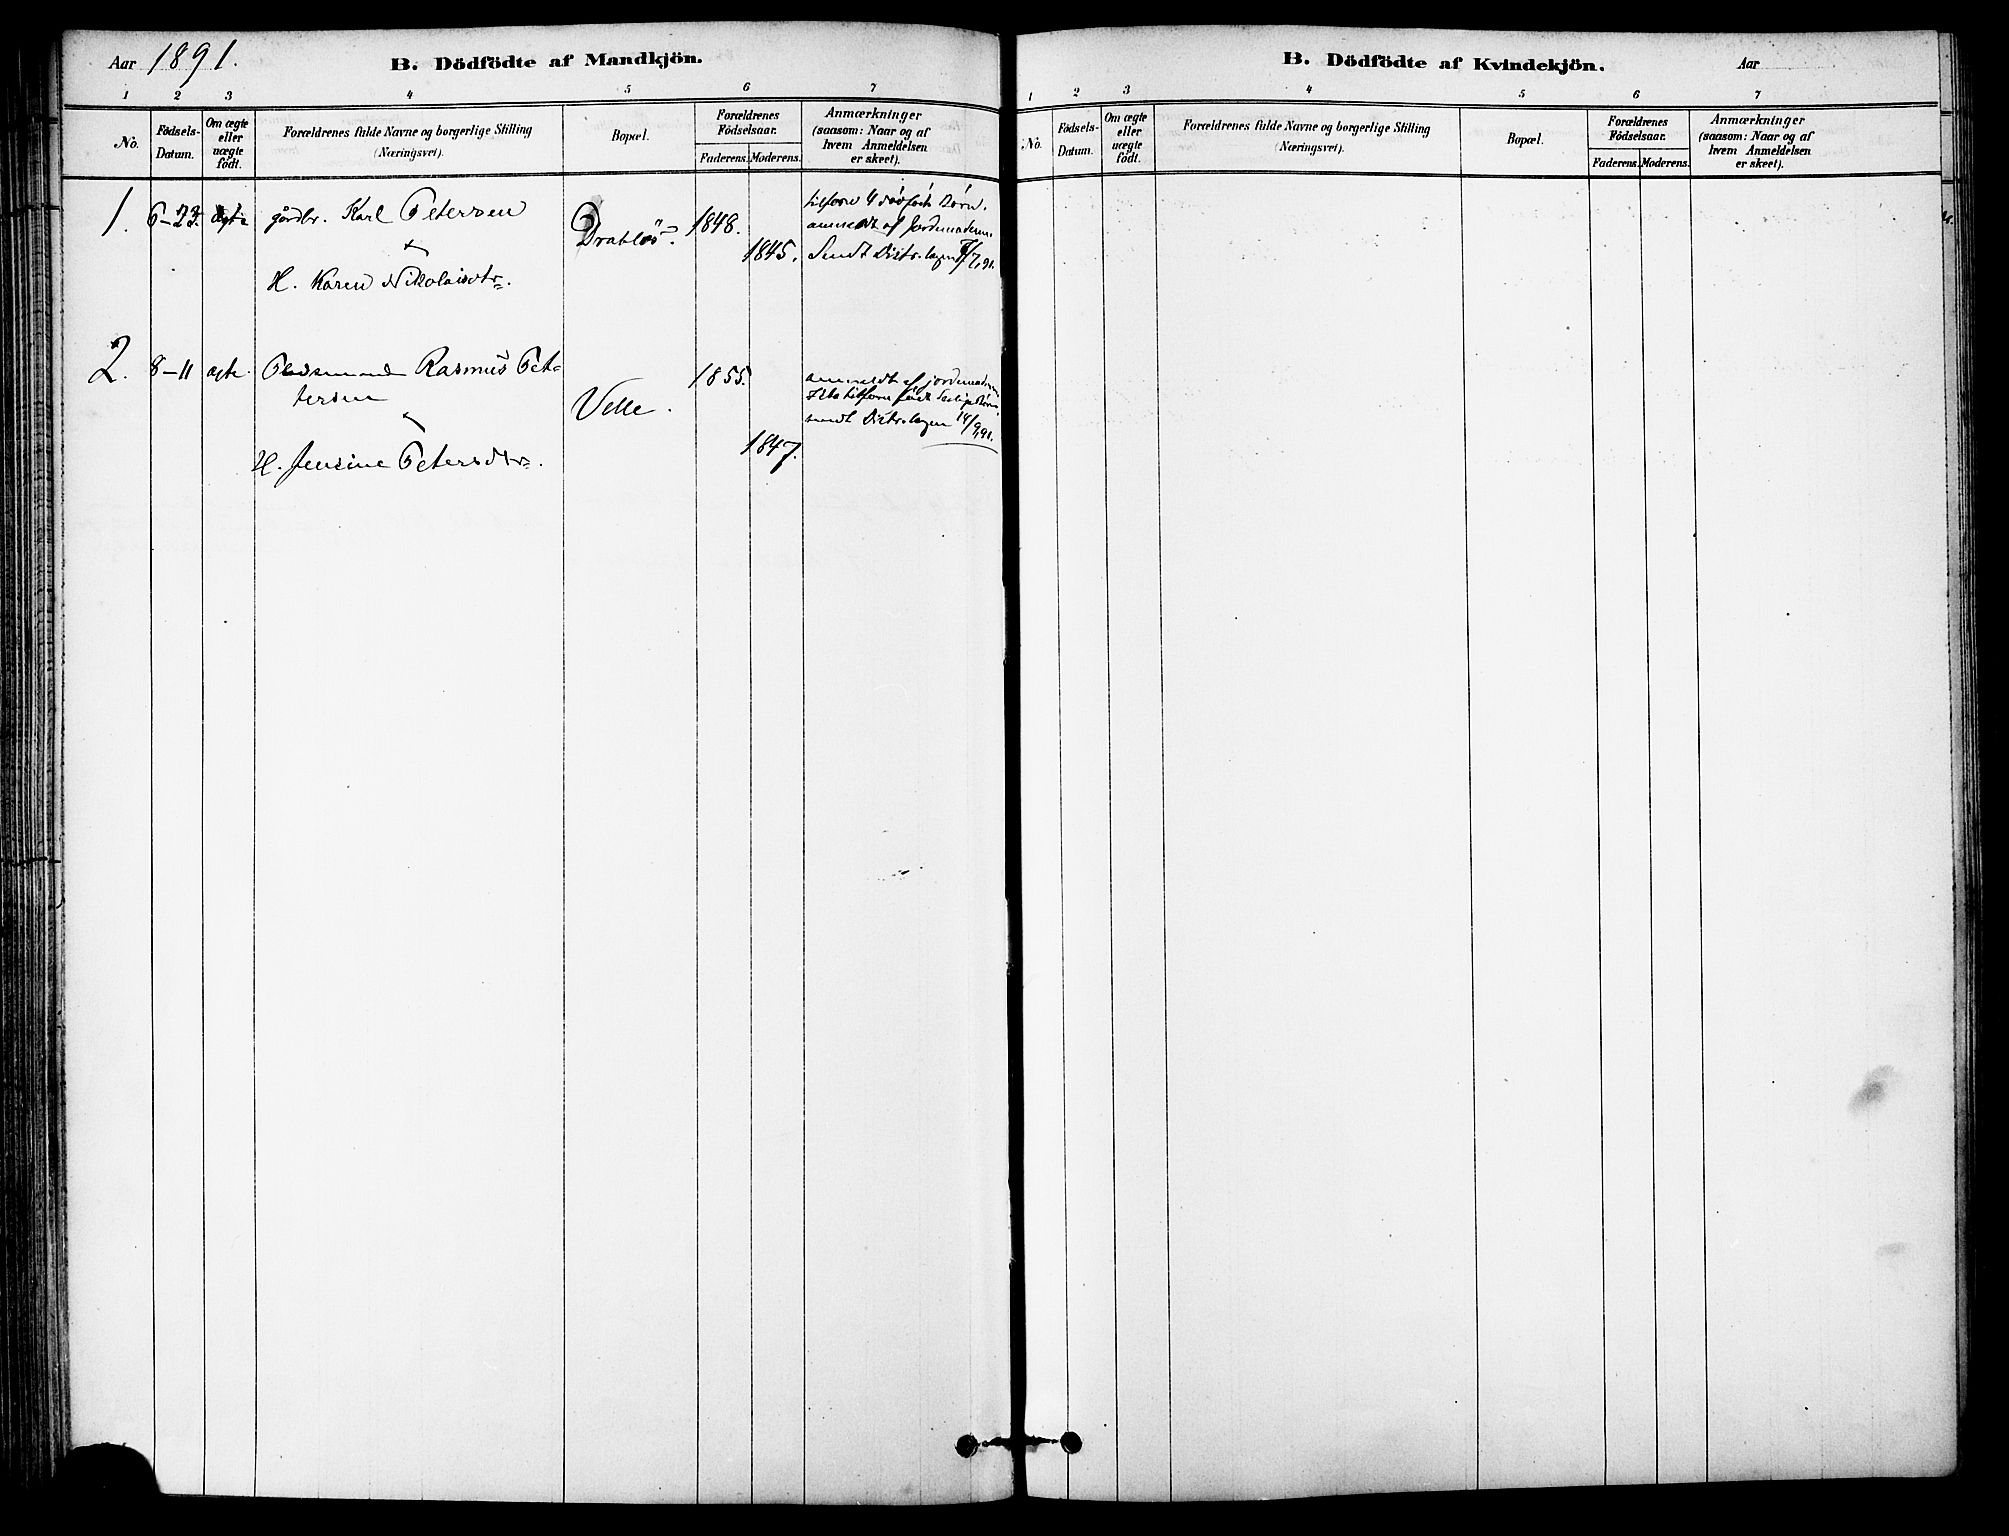 Aar 1891. B. Dödfödte af Mandkjön.
1 2 3 4 5 6 7
No. Födsels-Datum. Om ægte eller uægte födt. Forældrenes fulde Navne og borgerlige Stilling (Næringsvei). Bopæl. Forældrenes Födselsaar. Faderens. Moderens. Anmærkninger (saasom: Naar og af hvem Anmeldelsen er skeet).
1. 6-23. ægte gårdbr. Karl Petersen Drabløs 1848. tilforn 4 dødfødt Børn.
1845. anmeldt af Jordemoderen
H. Karen Nikolaisdtr. Sendt Distr.lægen 7/7,91.
2. 8-11 ægte. Pladsmand Rasmus Pet-
tersen Velle. 1855. anmeldt af jordemoderen
H. Jensine Petersdtr. 1847. tilforn født
sendt Distr.lægen 14/9,91.
B. Dödfödte af Kvindekjön. Aar
1 2 3 4 5 6 7
No. Födsels-Datum. Om ægte eller uægte födt. Forældrenes fulde Navne og borgerlige Stilling (Næringsvei). Bopæl. Forældrenes Födselsaar. Faderens. Moderens. Anmærkninger (saasom: Naar og af hvem Anmeldelsen er skeet).